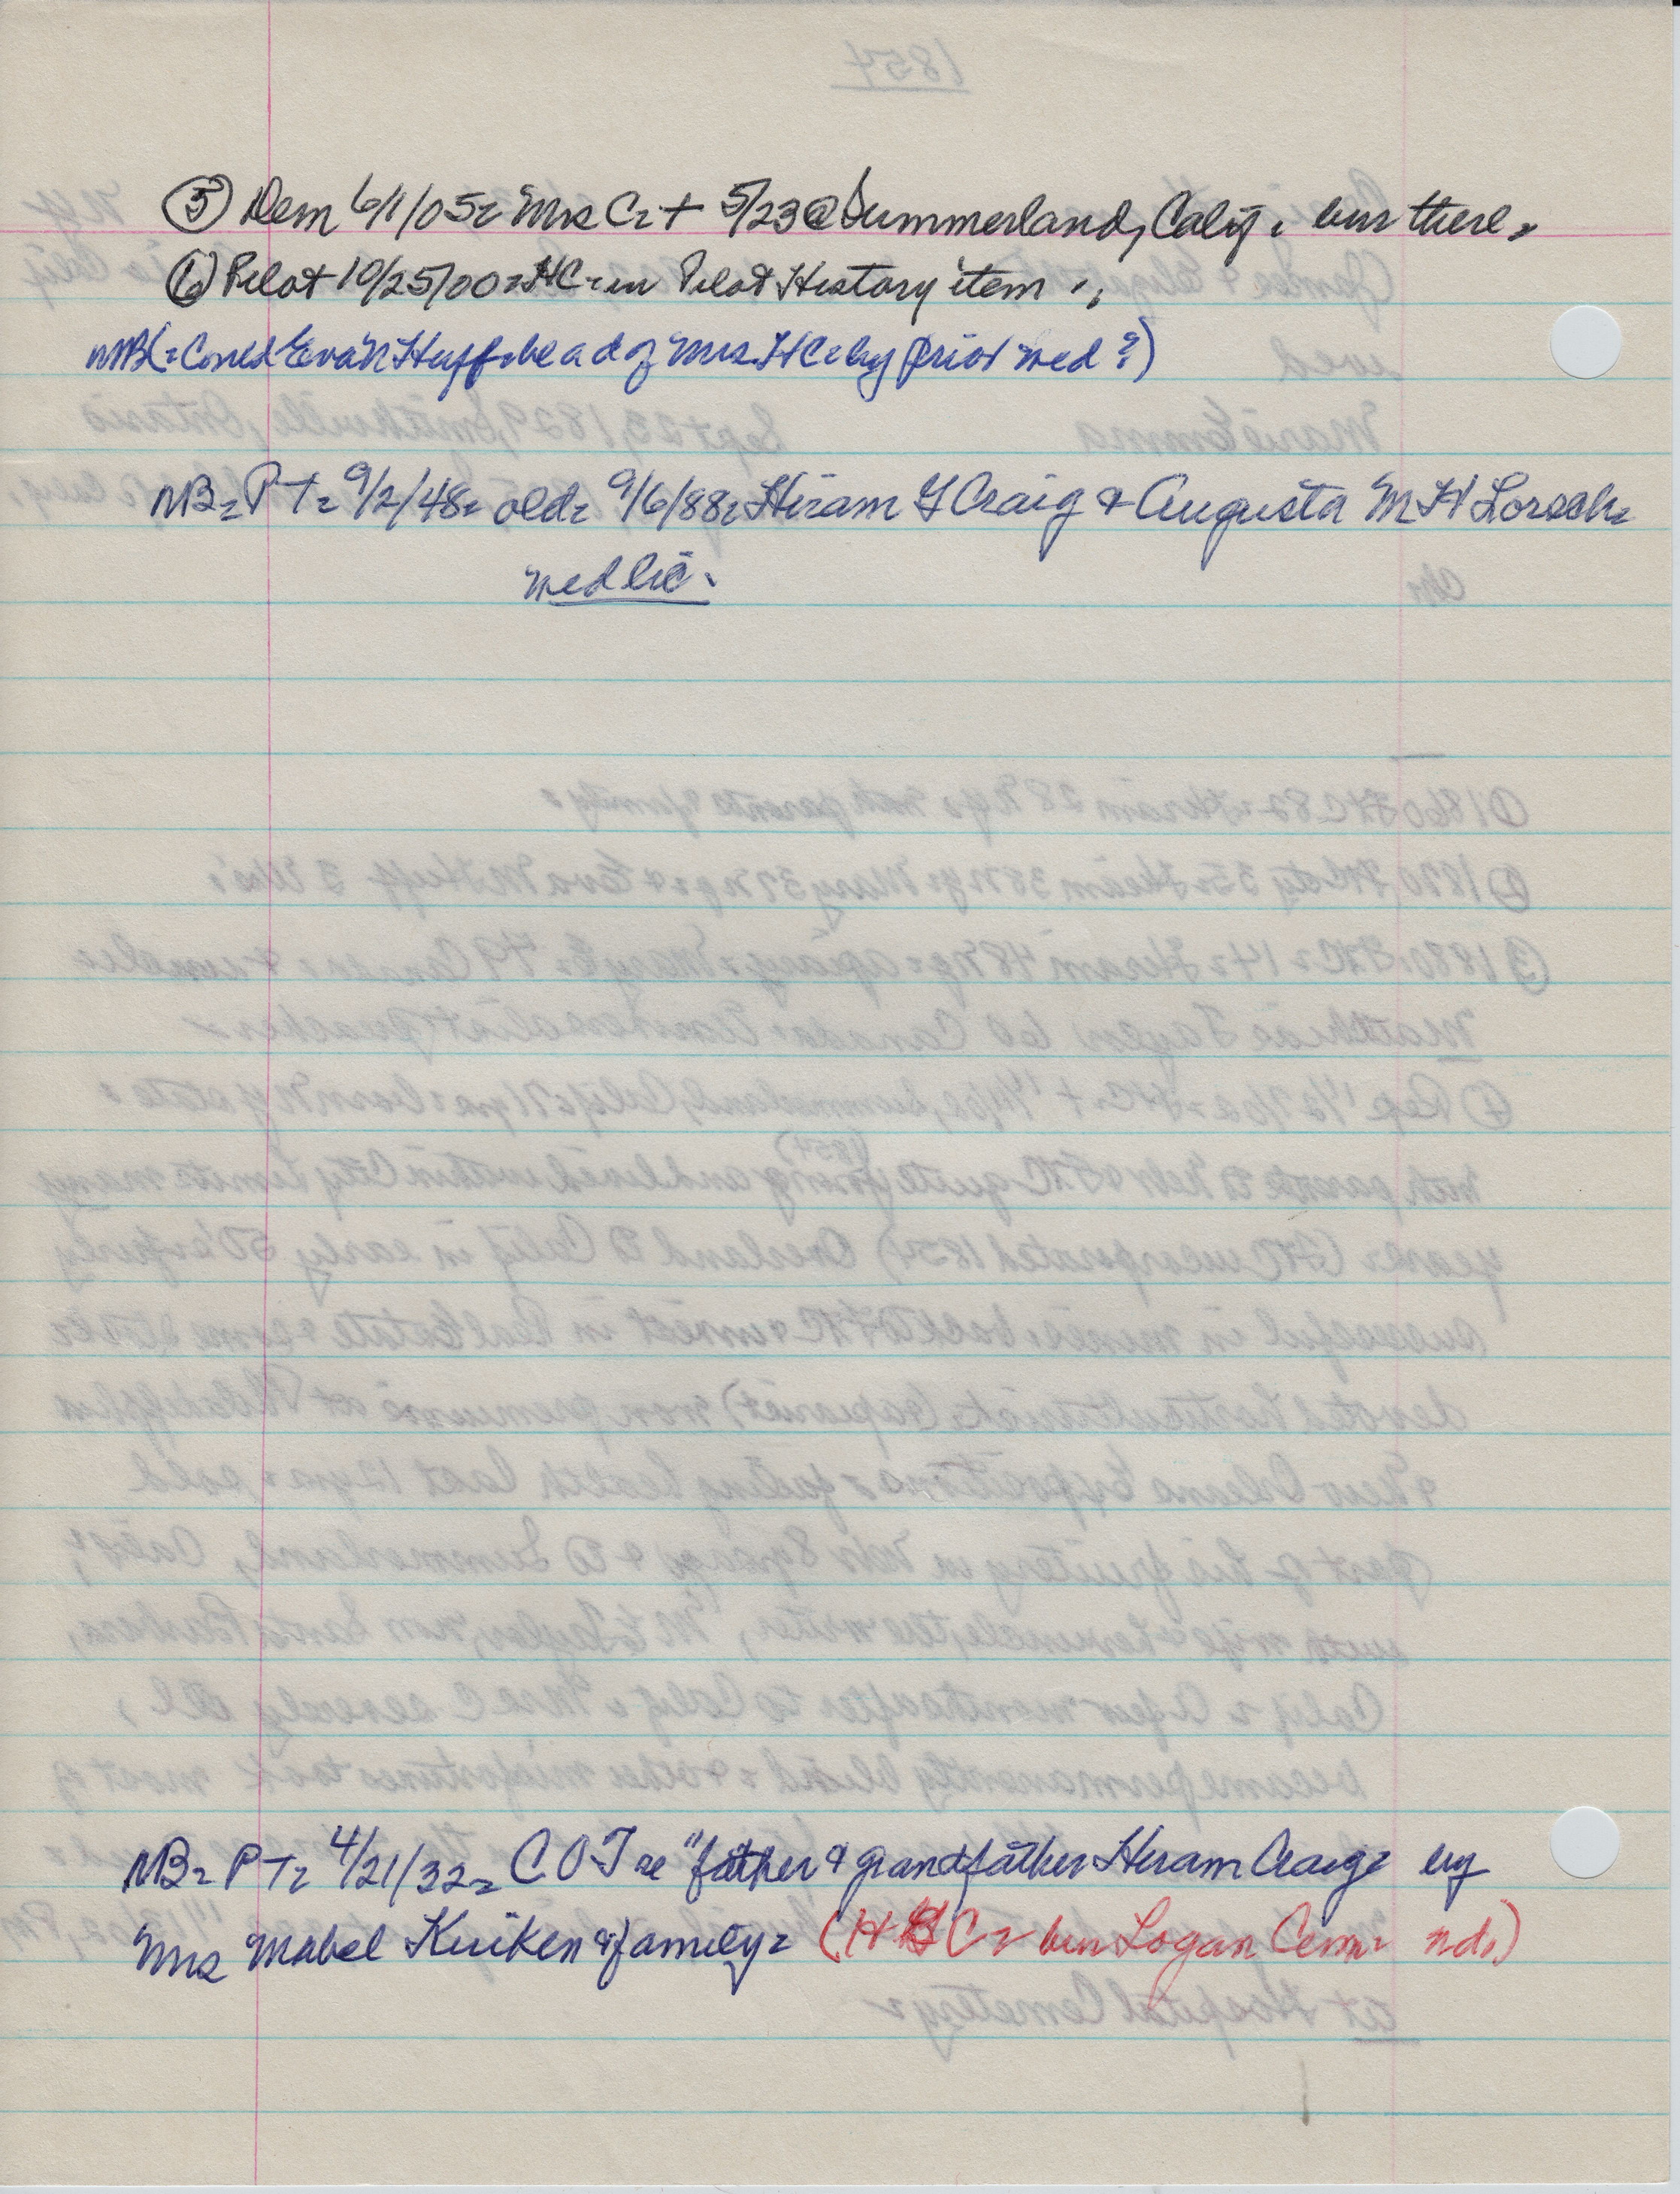 ⑤ Dem 6/1/05 = Mrs C = + 5/23 @ Summerland, Calif. bur there.
⑥ Pilot 10/25/00 = HC = in Pilot History item.
NB (= Could Eva N Huff be a d of Mrs HC = by prior wed?)
NB = PT = 9/2/48 = old = 9/6/88 = Hiram Y Craig & Augusta M H Lorsch =
wed lic.
NB = PT = 4/21/32 = C O T re "father & grandfather Hiram Craig = by
Mrs Mabel Kuiken & family = (H H C = bur Logan Cem = nd.)